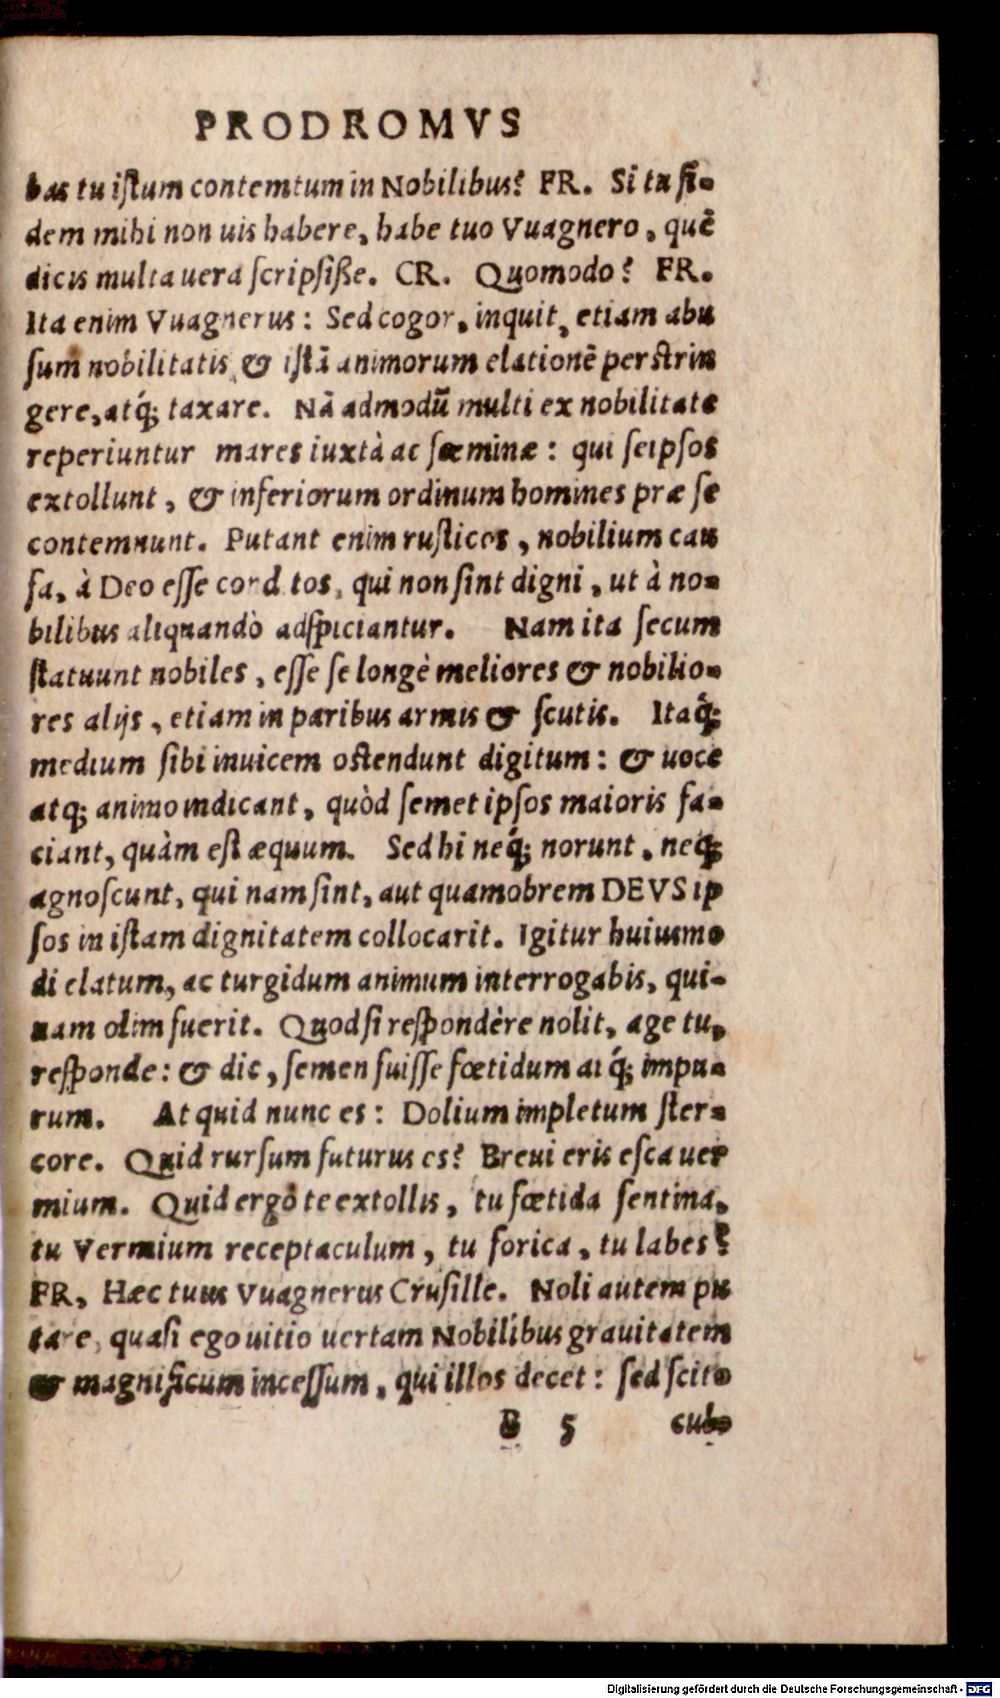 PRODROMVS
bas tu iſtum contemtum in Nobilibus? FR. Si tu fi-
dem mihi non uis habere, habe tuo Vuagnero, quē
dicis multa uera ſcripſiſſe. CR. Quomodo? FR.
Ita enim Vuagnerus: Sed cogor, inquit, etiam abu
ſum nobilitatis, & iſtā animorum elationē perſtrin
gere, atq́; taxare. Nā admodū multi ex nobilitate
reperiuntur mares iuxtà ac fœminæ: qui ſeipſos
extollunt, & inferiorum ordinum homines præ ſe
contemnunt. Putant enim ruſticos, nobilium cau
ſa, à Deo eſſe cond tos, qui non ſint digni, ut à no-
bilibus aliquandò adſpiciantur. Nam ita ſecum
ſtatuunt nobiles, eſſe ſe longè meliores & nobilio-
res alijs, etiam in paribus armis & ſcutis. Itaq́;
medium ſibi inuicem oſtendunt digitum: & uoce
atq; animo indicant, quòd ſemet ipſos maioris fa-
ciant, quàm eſt æquum. Sed hi neq́; norunt, neq́;
agnoſcunt, qui nam ſint, aut quamobrem DEVS ip
ſos in iſtam dignitatem collocarit. Igitur huiusmo
di elatum, ac turgidum animum interrogabis, qui-
nam olim fuerit. Quod ſi reſpondère nolit, age tu,
reſponde: & dic, ſemen fuiſſe fœtidum atq́; impu-
rum. At quid nunc es: Dolium impletum ſter-
core. Quid rurſum futurus es? Breui eris eſca uer
mium. Quid ergò te extollis, tu fœtida ſentina,
tu Vermium receptaculum, tu forica, tu labes?
FR, Hæc tuus Vuagnerus Cruſille. Noli autem pu
tare, quaſi ego uitio uertam Nobilibus grauitatem
& magnificum inceſſum, qui illos decet: ſed ſcito
B 5 cub-
Digitalisierung gefördert durch die Deutsche Forschungsgemeinschaft - DFG